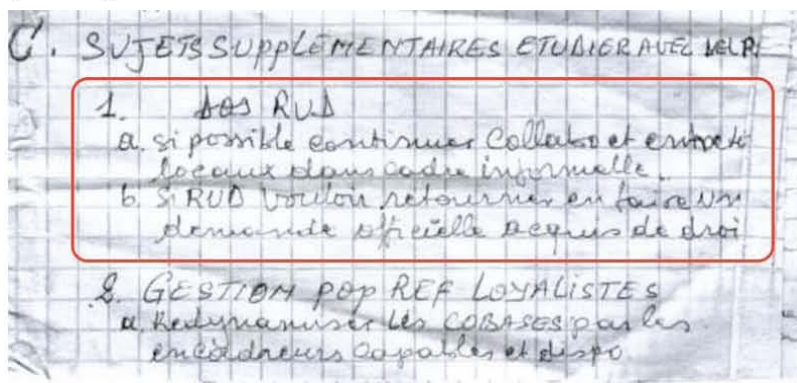 C. SUJETS SUPPLÉMENTAIRES ETUDIER AVEC DELP.
1. DOS RUD
a. si possible continuer Collabo et
locaux dans cadre informelle.
b. Si RUD vouloir retourner en faire un
demande officielle acquis de droi
2. GESTION POP REF LOYALISTES
a. Redynamiser les COBASES par les
encadreurs capables et dispo